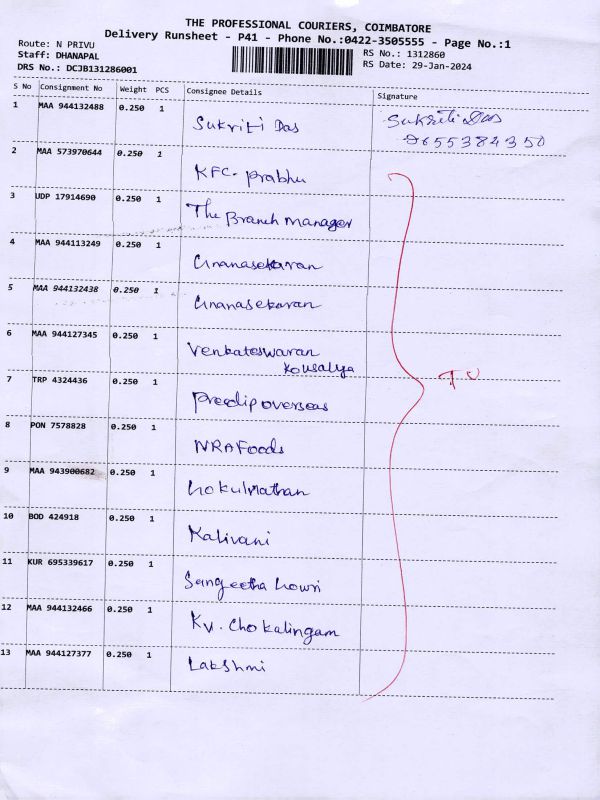 THE PROFESSIONAL COURIERS, COIMBATORE
Delivery Runsheet - P41 - Phone No.:0422-3505555 - Page No.:1
Route: N PRIVU
Staff: DHANAPAL
DRS No.: DCJB131286001
RS No.: 1312860
RS Date: 29-Jan-2024
S No Consignment No Weight PCS Consignee Details Signature
1 MAA 944132488 0.250 1 Sukriti Das Sukriti Das
9655384350
2 MAA 573970644 0.250 1 KFC. Prabhu
3 UDP 17914690 0.250 1 The Branch Manager
4 MAA 944113249 0.250 1 Gnanasekaran
5 MAA 944132438 0.250 1 Gnanasekaran
6 MAA 944127345 0.250 1 Venkateswaran
Kousalya
7 TRP 4324436 0.250 1 Predip overseas
8 PON 7578828 0.250 1 NRA Foods
9 MAA 943900682 0.250 1 Gokulnathan
10 BOD 424918 0.250 1 Kalivani
11 KUR 695339617 0.250 1 Sangeetha Gowri
12 MAA 944132466 0.250 1 Kv. Chokalingam
13 MAA 944127377 0.250 1 Lakshmi